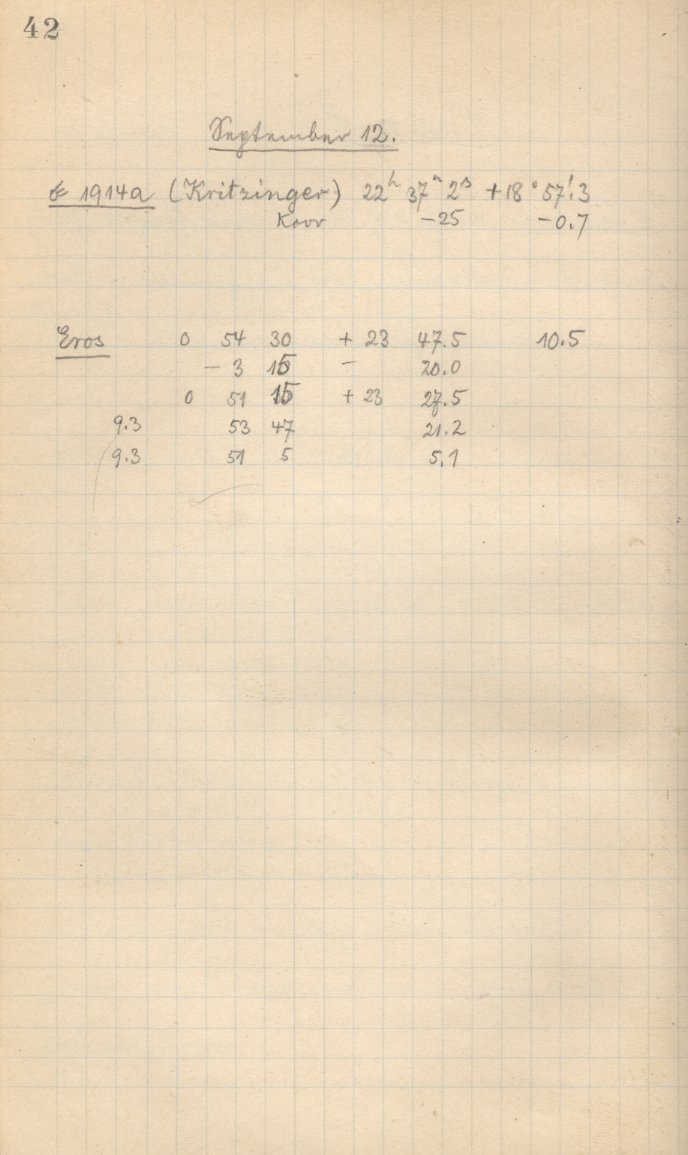 42
September 12.
☄ 1914a (Kritzinger) 22ʰ 37ᵐ 2ˢ +18° 57'.3
Korr −25 −0.7
Eros 0 54 30 + 23 47.5 10.5
− 3 15 − 20.0
0 51 15 + 23 27.5
9.3 53 47 21.2
9.3 51 5 5.1